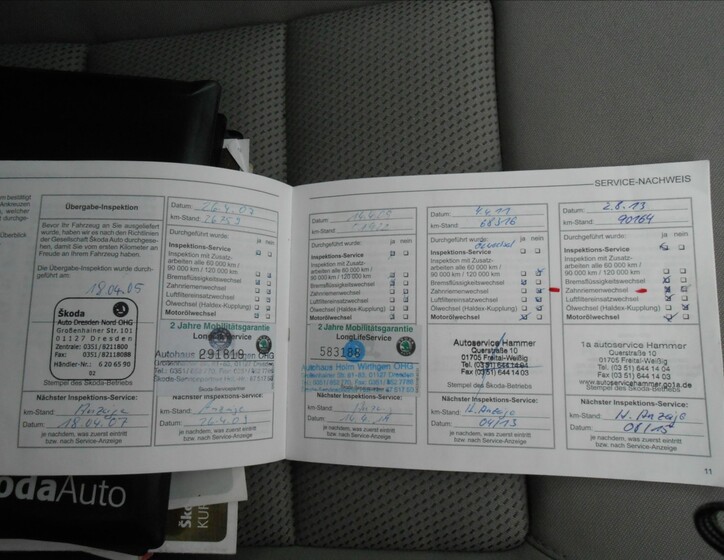 SERVICE-NACHWEIS
Übergabe-Inspektion
Bevor Ihr Fahrzeug an Sie ausgeliefert
wurde, haben wir es nach den Richtlinien
der Gesellschaft Škoda Auto durchgese-
hen, damit Sie vom ersten Kilometer an
Freude an Ihrem Fahrzeug haben.
Die Übergabe-Inspektion wurde durch-
geführt am:
18.04.05
Škoda
Auto Dresden Nord OHG
Großenhainer Str. 101
01127 Dresden
Zentrale: 0351/811800
Fax: 0351/82118088
Händler-Nr.: 6 206 5 90
02
Stempel des Škoda-Betriebs
Nächster Inspektions-Service:
km-Stand: Anzeige
Datum: 18.04.07
je nachdem, was zuerst eintritt
bzw. nach Service-Anzeige
Datum: 26.4.07
km-Stand: 26253
Durchgeführt wurde: ja nein
Inspektions-Service
Inspektion mit Zusatz-
arbeiten alle 60 000 km /
90 000 km / 120 000 km
Bremsflüssigkeitswechsel
Zahnriemenwechsel
Luftfiltereinsatzwechsel
Ölwechsel (Haldex-Kupplung)
Motorölwechsel
2 Jahre Mobilitätsgarantie
LongLifeService
291819
Nächster Inspektions-Service:
km-Stand: Anzeige
Datum: 26.4.09
je nachdem, was zuerst eintritt
bzw. nach Service-Anzeige
Datum:
km-Stand:
Durchgeführt wurde: ja nein
Inspektions-Service
Inspektion mit Zusatz-
arbeiten alle 60 000 km /
90 000 km / 120 000 km
Bremsflüssigkeitswechsel
Zahnriemenwechsel
Luftfiltereinsatzwechsel
Ölwechsel (Haldex-Kupplung)
Motorölwechsel
2 Jahre Mobilitätsgarantie
LongLifeService
583186
Autohaus Holm Wirthgen OHG
Nächster Inspektions-Service:
km-Stand:
Datum:
je nachdem, was zuerst eintritt
bzw. nach Service-Anzeige
Datum: 4.4.11
km-Stand: 68316
Durchgeführt wurde: ja nein
Inspektions-Service
Inspektion mit Zusatz-
arbeiten alle 60 000 km /
90 000 km / 120 000 km
Bremsflüssigkeitswechsel
Zahnriemenwechsel
Luftfiltereinsatzwechsel
Ölwechsel (Haldex-Kupplung)
Motorölwechsel
Autoservice Hammer
Querstraße 10
01705 Freital-Weißig
Tel. (03 51) 644 14 04
Fax (03 51) 644 14 03
Stempel des Škoda-Betriebs
Nächster Inspektions-Service:
km-Stand: n. Anzeige
Datum: 04/13
je nachdem, was zuerst eintritt
bzw. nach Service-Anzeige
Datum: 2.8.13
km-Stand: 90164
Durchgeführt wurde: ja nein
Inspektions-Service
Inspektion mit Zusatz-
arbeiten alle 60 000 km /
90 000 km / 120 000 km
Bremsflüssigkeitswechsel
Zahnriemenwechsel
Luftfiltereinsatzwechsel
Ölwechsel (Haldex-Kupplung)
Motorölwechsel
1a autoservice Hammer
Querstraße 10
01705 Freital-Weißig
Tel. (03 51) 644 14 04
Fax (03 51) 644 14 03
www.autoservicehammer.go1a.de
Stempel des Škoda-Betriebs
Nächster Inspektions-Service:
km-Stand: N. Anzeige
Datum: 08/15
je nachdem, was zuerst eintritt
bzw. nach Service-Anzeige
11
odaAuto